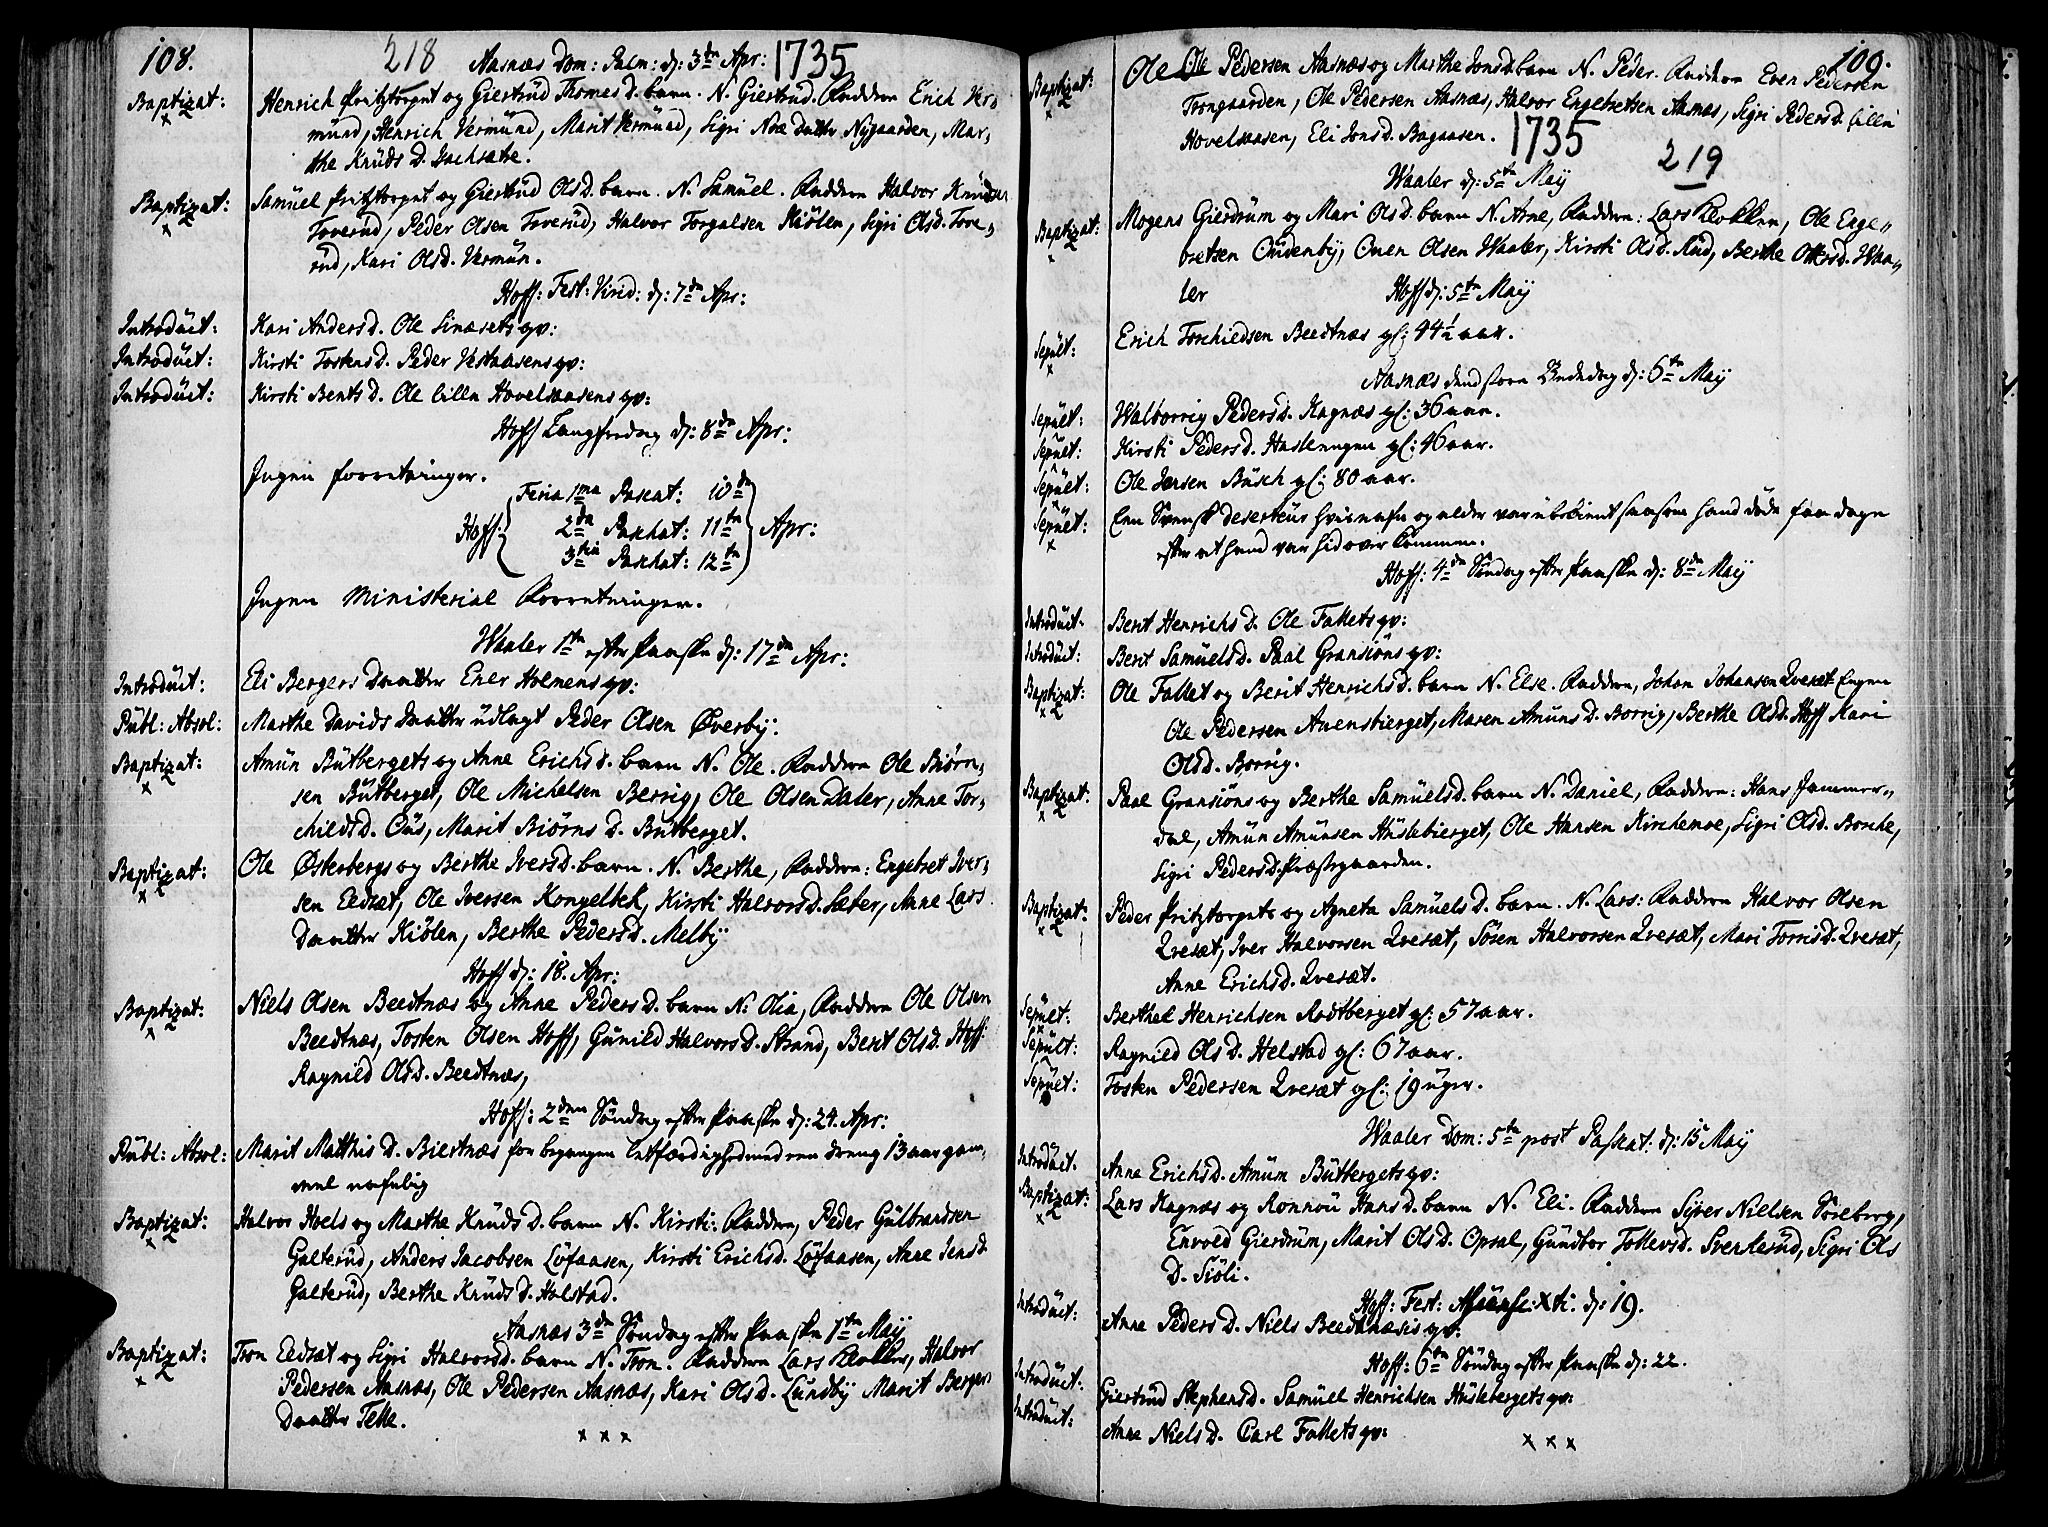 108.
218 Aasnæs Dom: Palm: d: 3de Apr: 1735
Baptizat: Henrich Fritztorpet og Giertrud Thomes D. barn. N. Giertrud. Faddern Erich Ver-
mund, Henrich Vermund, Marit Vermund, Sigri Noæ datter Nygaarden, Mar-
the Knuds D.
Baptizat: Samuel Fritztorpet og Giertrud Ols D. barn. N. Samuel. Faddern Halvor Knudsen
Toverud, Peder Olsen Toverud, Halvor Torgalsen Kiölen, Sigri Ols D. Tove-
rud, Kari Ols D. Vermun.
Hoff: Fest: Virid: d: 7de Apr:
Introduct: Kari Anders D. Ole Sinæsets qv:
Introduct: Kirsti Tostens D. Peder Vestaasens qv:
Introduct: Kirsti Bents D. Ole lille Hovelsaasens qv:
Hoff Langfredag d: 8de Apr:
Ingen forretninger.
Feria 1ma Pascat: 10de
Hoff: 2da Paschat: 11te Apr:
3tia Paschat: 12te
Ingen Ministerial Forretninger.
Waaler 1te efter Paaske d: 17de Apr:
Introduct: Eli Bergers Daatter Ener Holmens qv:
Publ: Absol: Marthe Davids Daatter udlagt Peder Olsen Øverby:
Baptizat: Amun Butbergets og Anne Erichs D. barn N. Ole. Faddern Ole Biörn-
sen Butberget, Ole Michelsen Berrig, Ole Olsen Daler, Anne Tor-
childs D. Ous, Marit Biörns D. Butberget.
Baptizat: Ole Østerbergs og Berthe Ivers D. barn. N. Berthe, Faddern: Engebret Iver-
sen Eidsæt, Ole Iversen Kongelbek, Kirsti Halvors D. Sæter, Anne Lars
Daatter Kiölen, Berthe Peders D. Melby
Hoff d: 18. Apr:
Baptizat: Niels Olsen Beedtnæs og Anne Peders D. barn N. Olia, Faddern Ole Olsen
Beedtnæs, Tosten Olsen Hoff, Gunild Halvors D. Strand, Berit Ols D. Hoff
Ragnild Ols D. Beedtnæs,
Hoff: 2den Söndag efter Paaske d: 24. Apr:
Publ: Absol: Marit Matthis D. Biertnæs for begangen letfærdighed med een dreng 13 aar gam-
mel
Baptizat: Halvor Hoels og Marthe Knuds D. barn N. Kirsti: Faddern, Peder Gulbrandsen
Galterud, Anders Jacobsen Löfaasen, Kirsti Erichs D. Löfaasen, Anne Jens D
Galterud, Berthe Knuds D. Holstad.
Aasnæs 3de Söndag efter Paaske 1te Maij
Baptizat: Tron Eidsæt og Sigri Halvors D. barn N. Tron. Faddern Lars Klokker, Halvor
Pedersen Aasnæs, Ole Pedersen Aasnæs, Kari Ols D. Lundby Marit Bergers
Daatter Telle.
x x x
109.
Baptizat: Ole Ole Pedersen Aasnæs og Marthe Jons D. barn N. Peder. Faddern Even Pedersen
Trongaarden, Ole Pedersen Aasnæs, Halvor Engebretsen Aasnæs, Sigri Peders D. lille
Hovelsaasen, Eli Jons D. Bagaasen. 1735
219
Waaler d: 5te Maij
Baptizat: Mogens Gierdrum og Mari Ols D. barn N. Arne, Faddern: Lars Klokker, Ole Enge-
bretsen Oudenby, Onen Olsen Waaler, Kirsti Ols D. Rud, Berthe Otters D. Waa-
ler Hoff d: 5te Maij
Sepult: Erich Torchieldsen Beedtnæs gl: 44½ aar.
Aasnæs dend store Bededag d: 6te Maij
Sepult: Walborrig Peders D. Kagnæs gl: 36 aar.
Sepult: Kirsti Peders D. Haslengen gl: 46 aar.
Sepult: Ole Jensen Busch gl: 80 aar.
Sepult: Een Svensk deserteur hvis nafn og alder var ubekient saasom hand döde faa dage
efter at hand var hid over kommen.
Hoff: 4de Söndag efter Paaske d: 8de Maij
Introduct: Berit Henrichs D. Ole Fallets qv:
Introduct: Berit Samuels D. Paal Gransiöns qv:
Baptizat: Ole Fallet og Berit Henrichs D. barn N. Else. Faddern, Johan Johansen Qvesæt Engen
Ole Pedersen Auensbierget, Maren Amuns D. Borrig, Berthe Ols D. Hoff Kari
Ols D. Borrig.
Baptizat: Paal Gransiöns og Berthe Samuels D. barn N. Daniel, Faddern: Hans Jammer-
dal, Amun Amunsen Huslebierget, Ole Hansen Kirchemoe, Sigri Ols D. Borche,
Sigri Peders D. Præstgaarden.
Baptizat: Peder Fritztorpets og Agneta Samuels D. barn. N. Lars: Faddern Halvor Olsen
Qvesæt, Iver Halvorsen Qvesæt, Sören Halvorsen Qvesæt, Mari Torris D. Qvesæt,
Anne Erichs D. Qvesæt.
Sepult: Berthel Henrichsen Rodtberget gl: 57 aar.
Sepult: Ragnild Ols D. Helstad gl: 67 aar.
Sepult: Tosten Pedersen Qvesæt gl: 19 uger.
Waaler Dom: 5te post Paskat: d: 15 Maij
Introduct: Anne Erichs D. Amum Butbergets qv:
Baptizat: Lars Kagnæs og Ronnou Hans D. barn N. Eli. Faddern Syver Nielsen Söreberg,
Envold Gierdrum, Marit Ols D. Opsal, Gundbor Tollevs D. Sverkerud, Sigri Ols
D. Siöli.
Hoff: Fest: Ascens: Xti. d: 19.
Introduct: Anne Peders D. Niels Beedtnæsis qv:
Hoff: 6te Söndag efter Paaske d: 22.
Introduct: Giertrud Stephens D. Samuel Henrichsen Huslebergets qv:
Introduct: Anne Niels D. Carl Fallets qv:
x x x